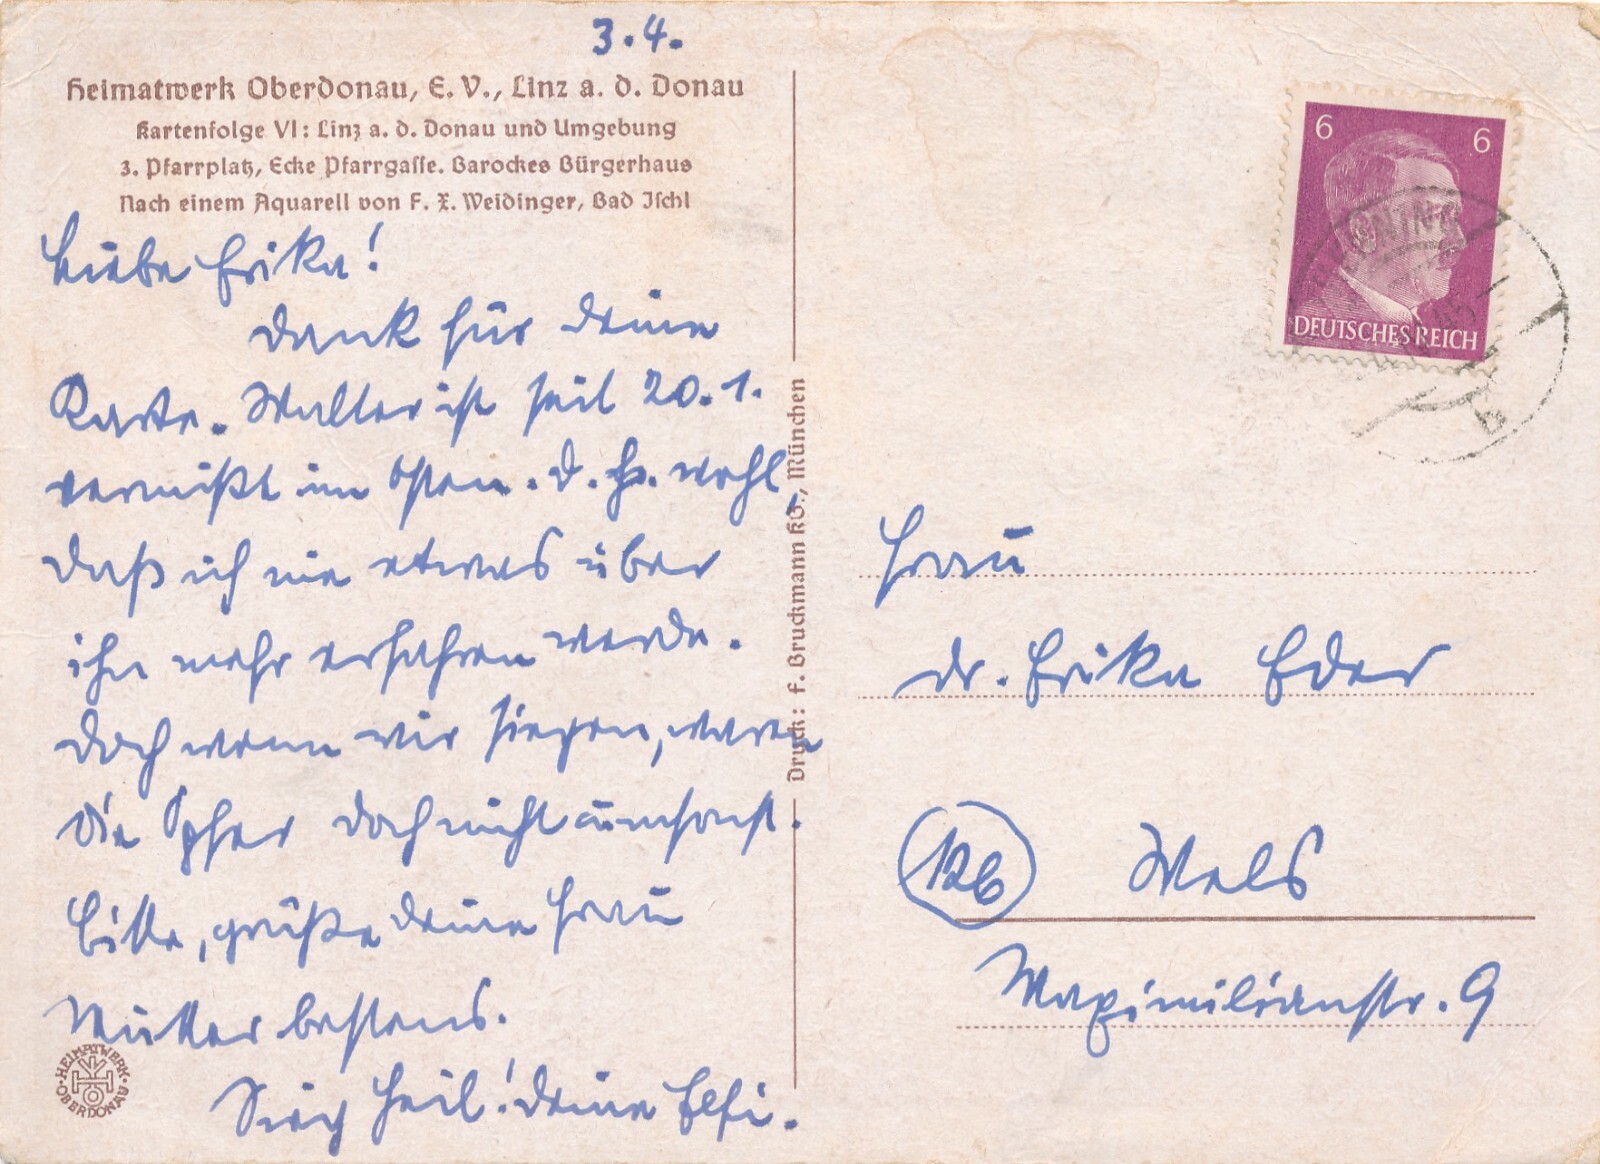 3.4.
Heimatwerk Oberdonau, E. V., Linz a. d. Donau
Kartenfolge VI: Linz a. d. Donau und Umgebung
3. Pfarrplatz, Ecke Pfarrgasse. Barockes Bürgerhaus
Nach einem Aquarell von F. X. Weidinger, Bad Ischl
Liebe Erika!
Dank für Deine
Karte. Walter ist seit 20.1.
vermißt im Osten. D. h. wohl,
daß ich nie etwas über
ihn mehr erfahren werde.
Doch wenn wir siegen, waren
die Opfer doch nicht umsonst.
Bitte, grüße Deine Frau
Mutter bestens.
Sieg Heil! Deine Elfi.
HEIMATWERK OBERDONAU
Druck: F. Bruckmann KG., München
6 6
DEUTSCHES REICH
b
Frau
Dr. Erika Eder
12b Wels
Maximilianstr. 9